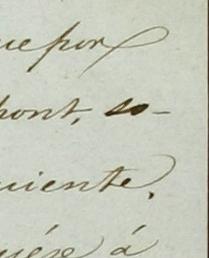 ue por
pont, so-
uiente,
uiére á